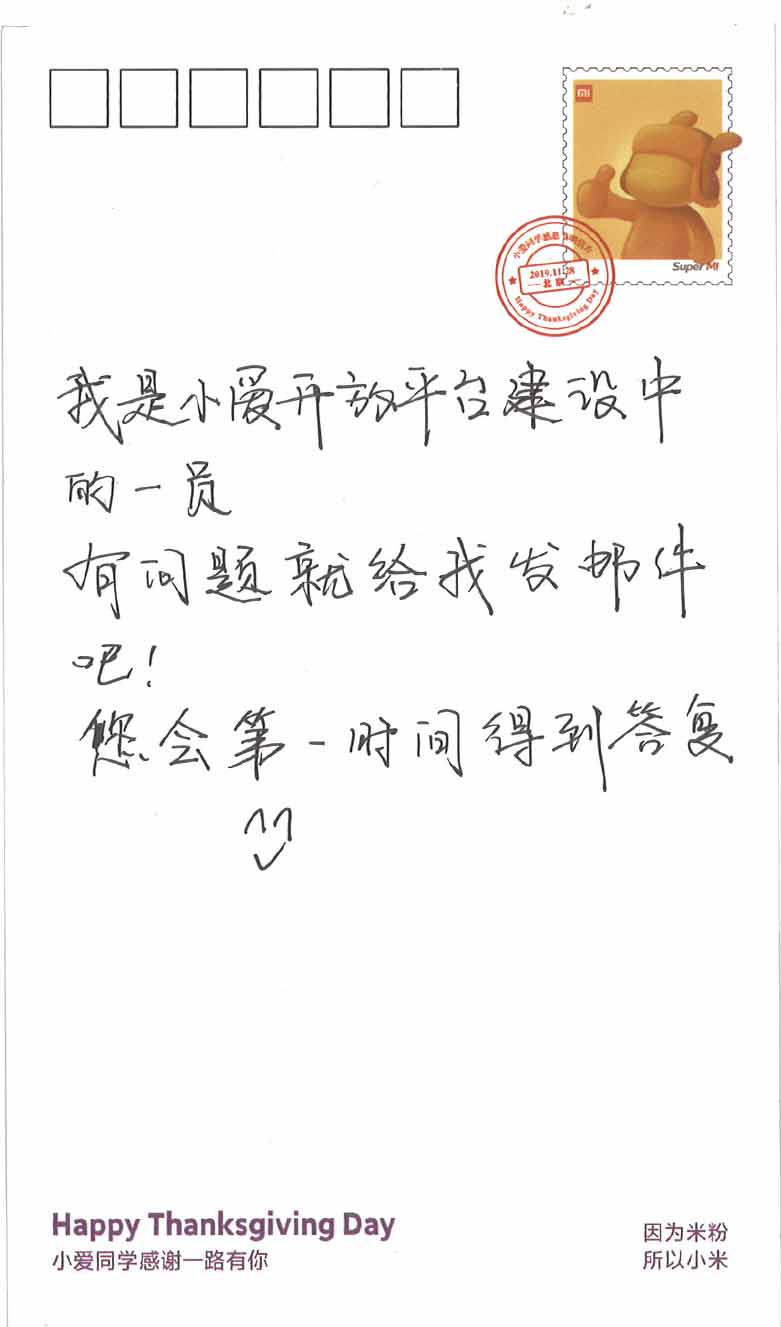 MI
Super MI
小爱同学感恩
2019.11.28
北京
Happy Thanksgiving Day
我是小爱开放平台建设中
的一员
有问题就给我发邮件
吧!
您会第一时间得到答复
Happy Thanksgiving Day
小爱同学感谢一路有你
因为米粉
所以小米